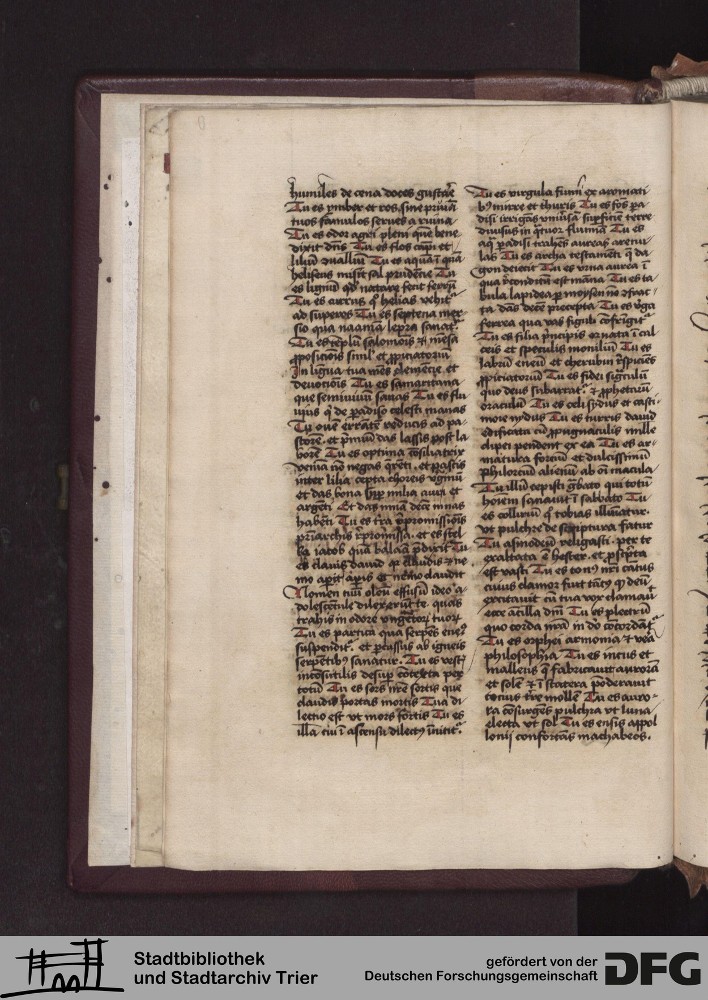 humiles de cena doces gustare
Tu es ymber et ros sine pruina
tuos famulos serues a ruina
Tu es odor agri pleni que bene
dixit dns Tu es flos campi et
lilium uallium Tu es aqua in qua
heliseus misit sal prudencie Tu
es lignum qd natare fecit ferrum
Tu es currus quo helias vehitur
ad superos Tu es septena mer
sio qua naaman lepra sanatur
Tu es templum salomonis et mensa
propositionis simul et propiciatorium
In lingua tua mes clemencie et
deuotionis Tu es samaritana
que semiuiuum sanas Tu es flu
uius qui de paradiso celesti manas
Tu ouem errantem reducis ad pa
storem et premium das lassis post la
borem Tu es optima consiliatrix
veniam non negas querenti et pascis
inter lilia cepta choreis virginum
et das bona super milia auri et
argenti Et das mnam decem mnas
habenti Tu es terra repromissionis
patriarchis repromissa et es stel
la iacob quam balaam predixit Tu
es clauis dauid que claudis et ne
mo aperit aperis et nemo claudit
Nomen tuum oleum effusum ideo a
dolescentule dilexerunt te quas
trahis in odore vngentorum tuorum
Tu es partica qua serpens eneus
suspenditur et percussus ab igneis
serpentibus sanatur Tu es vestis
inconsutilis desuper contexta per
totum Tu es sors nostre sortis que
claudis portas mortis Tua di
lectio est vt mors fortis Tu es
illa cui in ascensu dilectus innititur
Tu es virgula fumi ex aromati
bus mirre et thuris Tu es fons pa
disi irrigans vniuersam superficiem terre
diuisus in quatuor flumina Tu es
aqua paradisi trahens aureas arenu
las Tu es archa testamenti que da
gon deiecit Tu es vrna aurea in
qua reconditum est manna Tu es ta
bula lapidea per moysen non confrac
ta dans decem precepta Tu es virga
ferrea qua vas figuli confringitur
Tu es filia principis ornata in cal
ceis et speculis monilium Tu es
labrum eneum et cherubin respiciens
propiciatorium Tu es fidei signaculum
quo deus subarratur et prophetarum
oraculum Tu es celi sydus et casti
monie nydus Tu es turris dauid
edificata cum propugnaculis mille
clipei pendent ex ea Tu es ar
matura fortium et dulcissimum
philorcium alienum ab omni macula
Tu illum cepisti grabato qui totum
hominem sanauit in sabbato Tu
es collirium quo tobias illuminatur
vt pulchre de scriptura fatur
Tu asmodeum religasti per te
exaltata est hester et prescripta
est vasti Tu es tonus nostri cantus
cuius clamor fuit tantus quod deum
excitauit cum tua vox clamauit
ecce ancilla domini Tu es plectrum
quo corda nostra in domino concordantur
Tu es orphei armonia et vera
philosophia Tu es incus et
malleus qui fabricauit auroram
et solem et in statera ponderauit
tocius terre mollem Tu es auro
ra consurgens pulchra vt luna
electa vt sol Tu es ensis appol
lonii confortans machabeos.
Stadtbibliothek
und Stadtarchiv Trier
gefördert von der
Deutschen Forschungsgemeinschaft
DFG